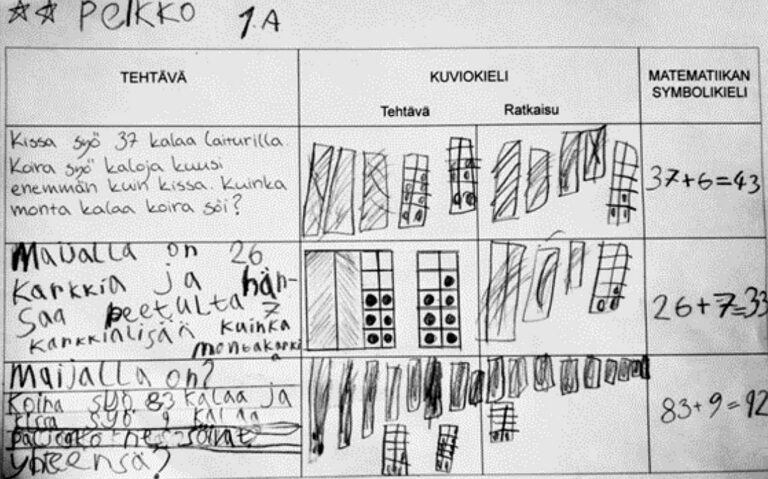 ☆☆ Pelkko 1.A
TEHTÄVÄ
KUVIOKIELI
Tehtävä Ratkaisu
MATEMATIIKAN
SYMBOLIKIELI
Kissa syö 37 kalaa laiturilla.
Koira syö kaloja kuusi
enemmän kuin kissa. Kuinka
monta kalaa koira söi?
37+6=43
Maijalla on 26
karkkia ja hän-
Saa peetulta 7
karkkialisää kuinka
montakarki
a
26+7=33
Maijalla on?
Koira syö 83 kalaa ja
kissa syö 9 kalaa
söivät
yhteensä?
83+9=92